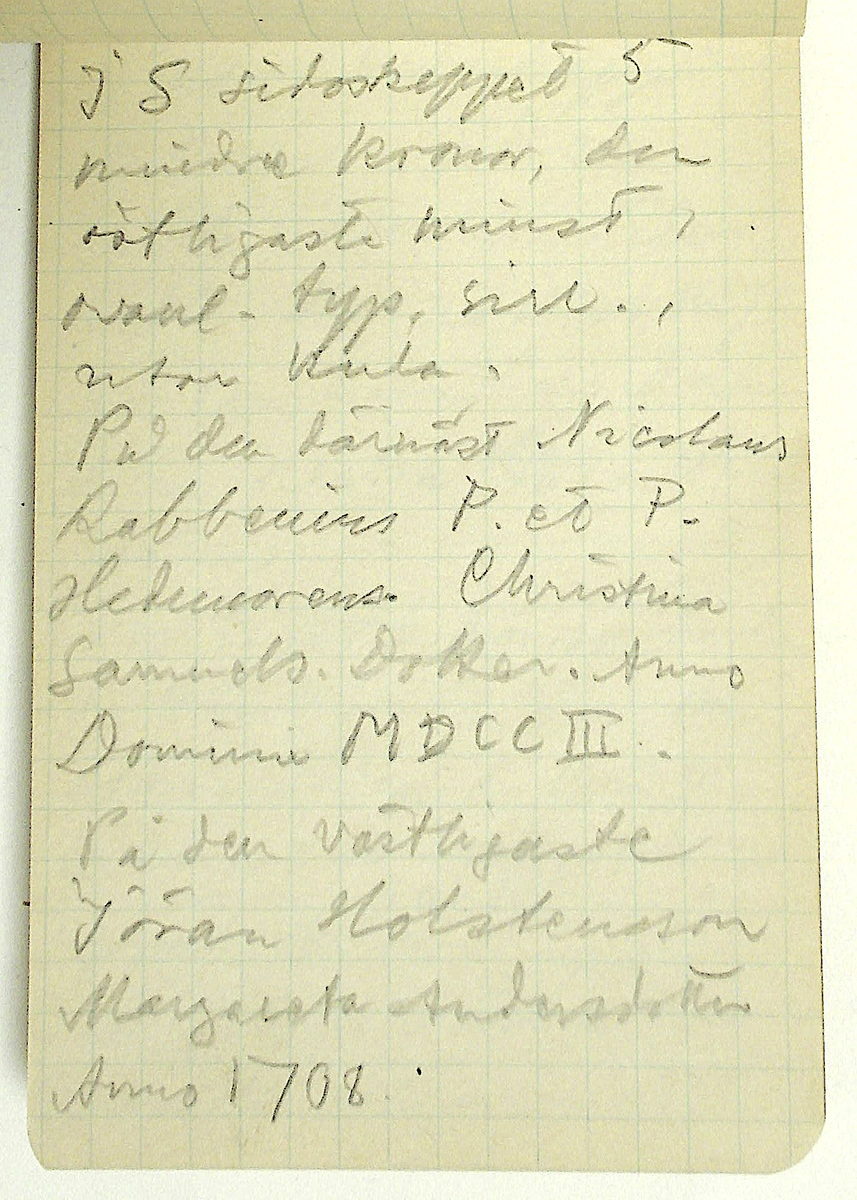 I S sidoskeppet 5
mindre kronor, den
östligaste minst,
typ,
utan kula.
På den därnäst Nicolaus
Rabbenius P. et P.
Hedemorens. Christina
Samuels. Dotter. Anno
Domini MDCCIII.
På den västligaste
Jöran Holstensson
Margareta Andersdotter
Anno 1708.